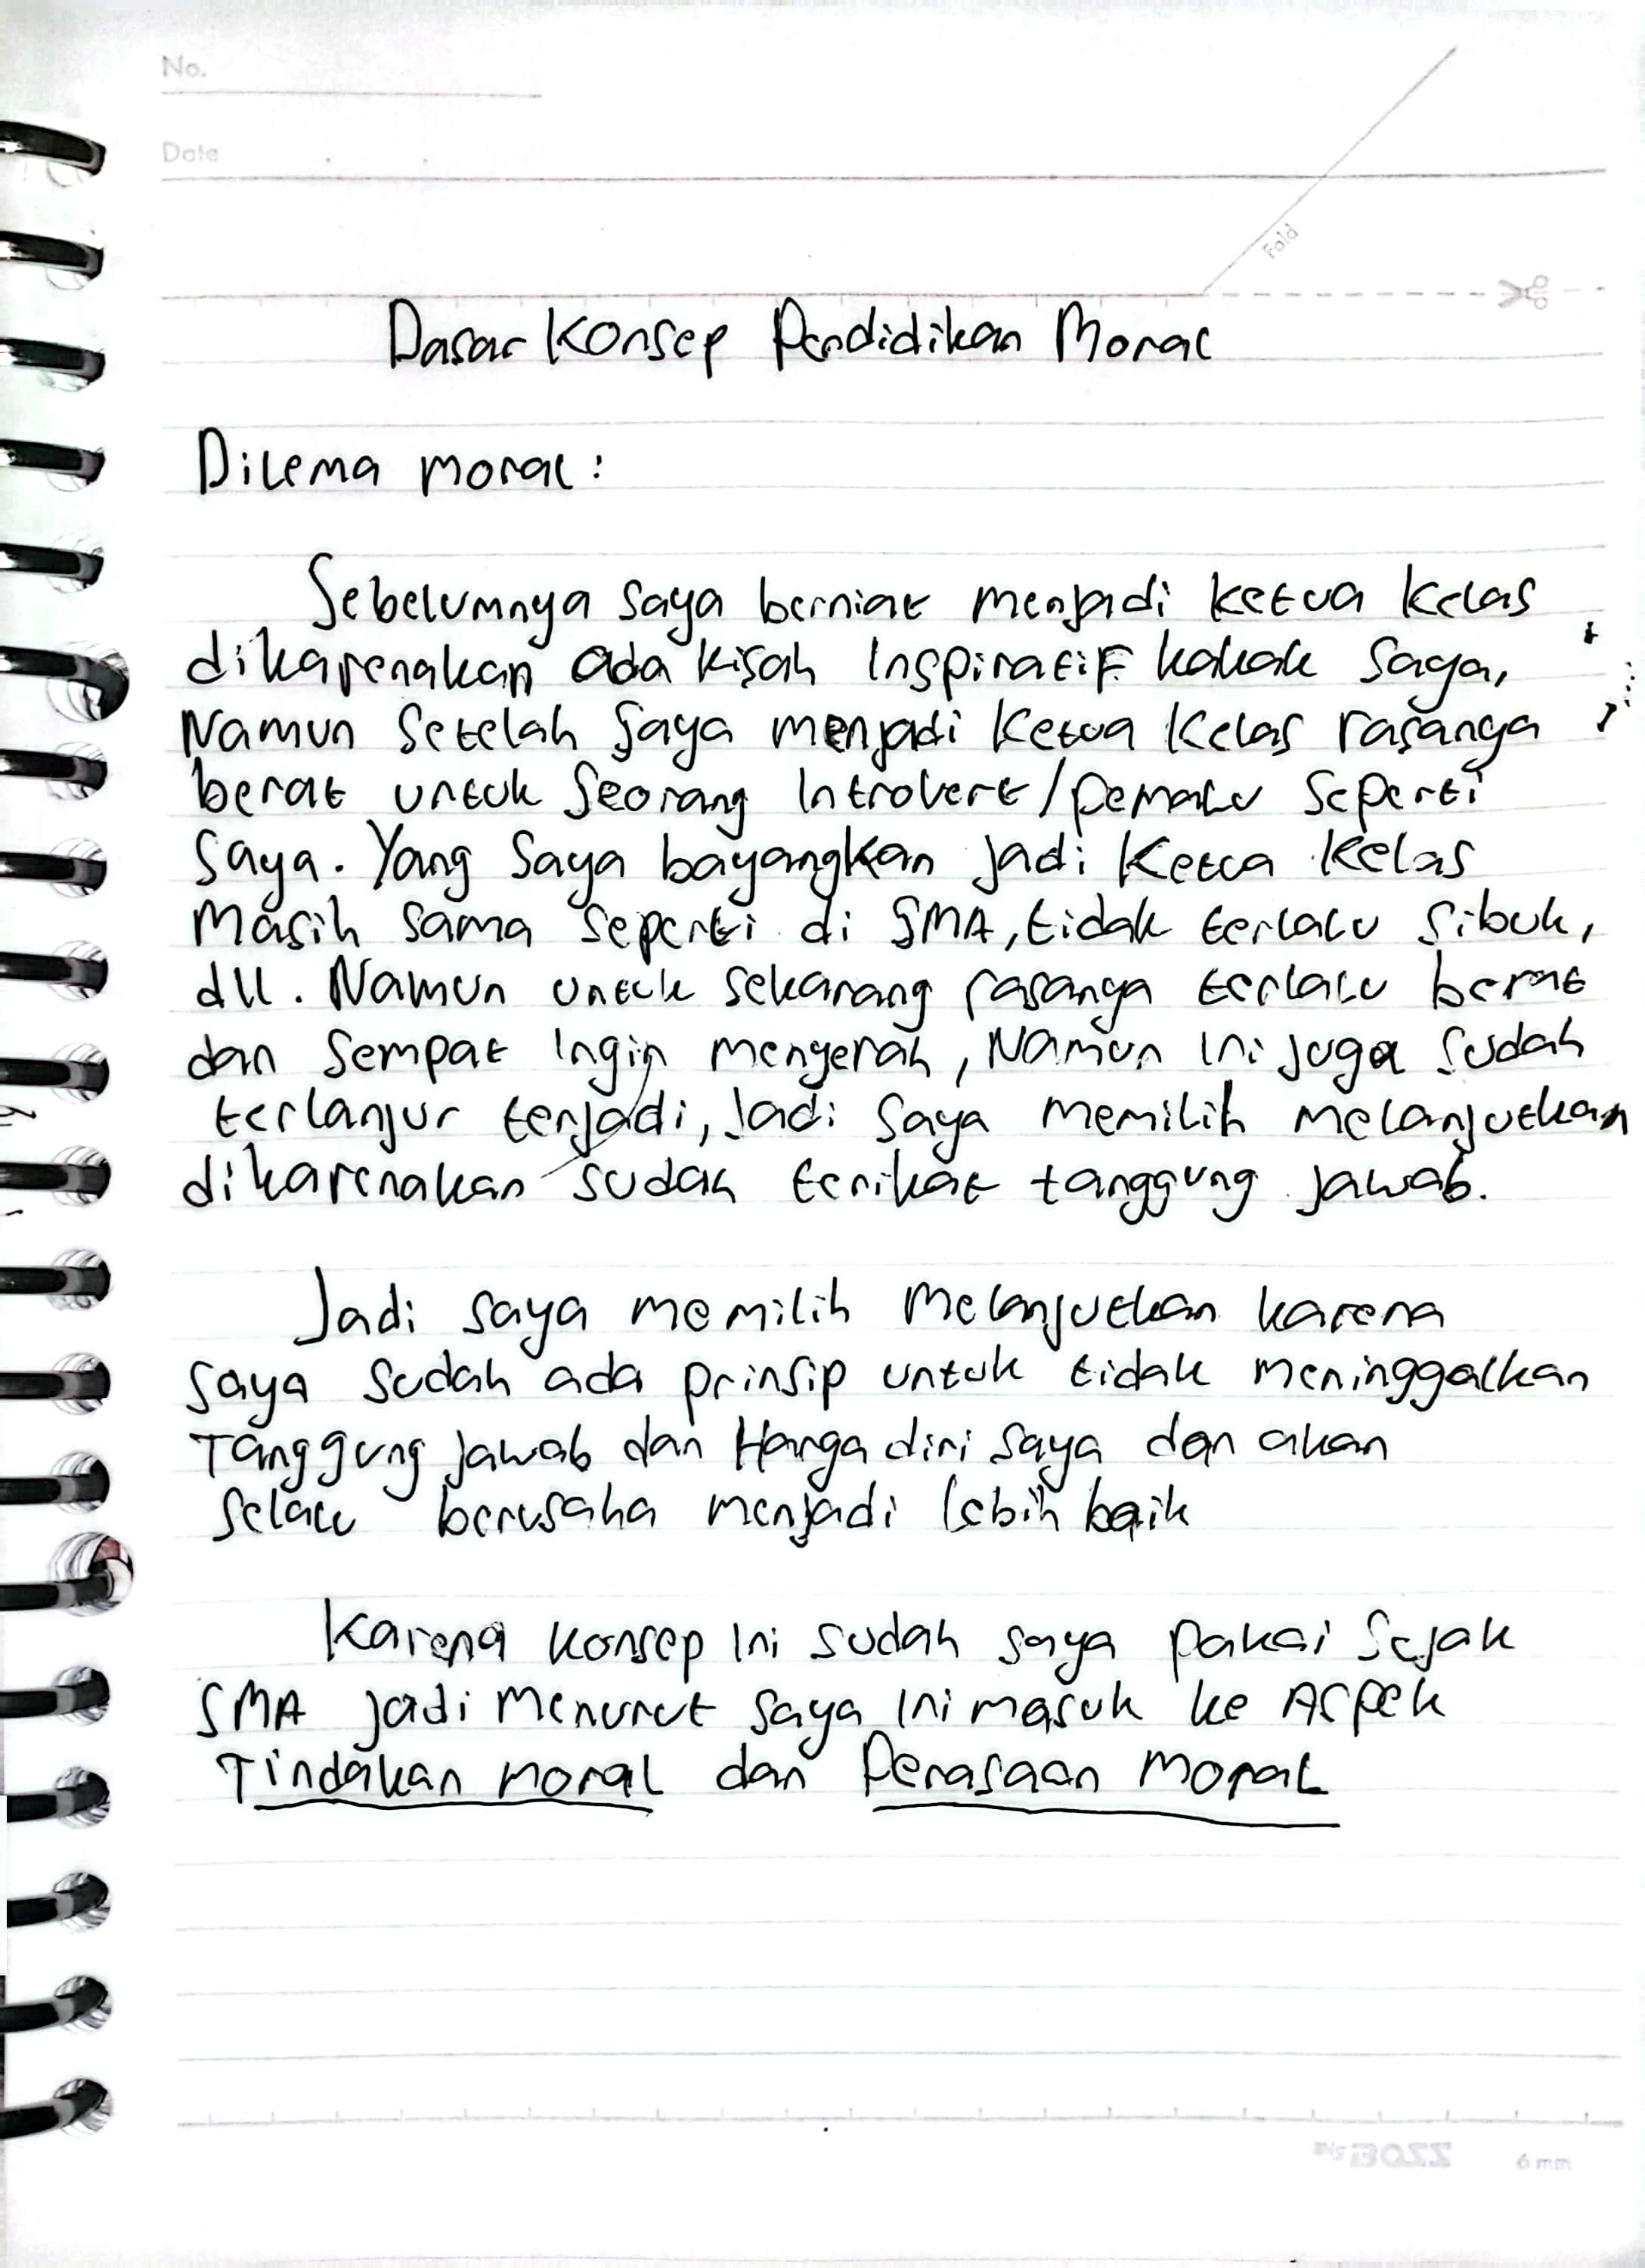 No.
Date
Fold
Dasar Konsep Pendidikan Moral
Dilema moral:
Sebelumnya saya berniat menjadi ketua kelas
dikarenakan ada kisah inspiratif kakak saya,
Namun setelah saya menjadi ketua kelas rasanya
berat untuk seorang introvert/pemalu seperti
saya. Yang saya bayangkan jadi ketua kelas
Masih sama seperti di SMA, tidak terlalu sibuk,
dll. Namun untuk sekarang rasanya terlalu berat
dan sempat ingin menyerah, Namun ini juga sudah
terlanjur terjadi, Jadi saya memilih melanjutkan
dikarenakan sudah terikat tanggung jawab.
Jadi saya memilih melanjutkan karena
saya sudah ada prinsip untuk tidak meninggalkan
Tanggung jawab dan Harga diri saya dan akan
selalu berusaha menjadi lebih baik
Karena konsep ini sudah saya pakai sejak
SMA jadi menurut saya ini masuk ke Aspek
Tindakan moral dan Perasaan moral
6 mm